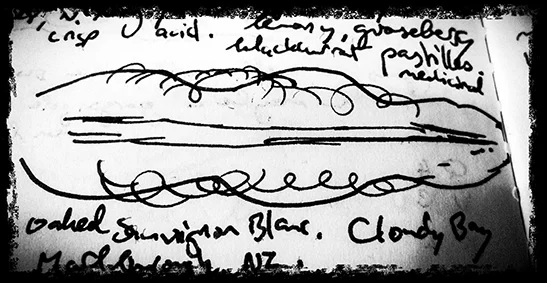 crisp acid. lemony, gooseberry
blackcurrant pastilles.
medicinal
oaked Sauvignon Blanc. Cloudy Bay
Marlborough NZ.